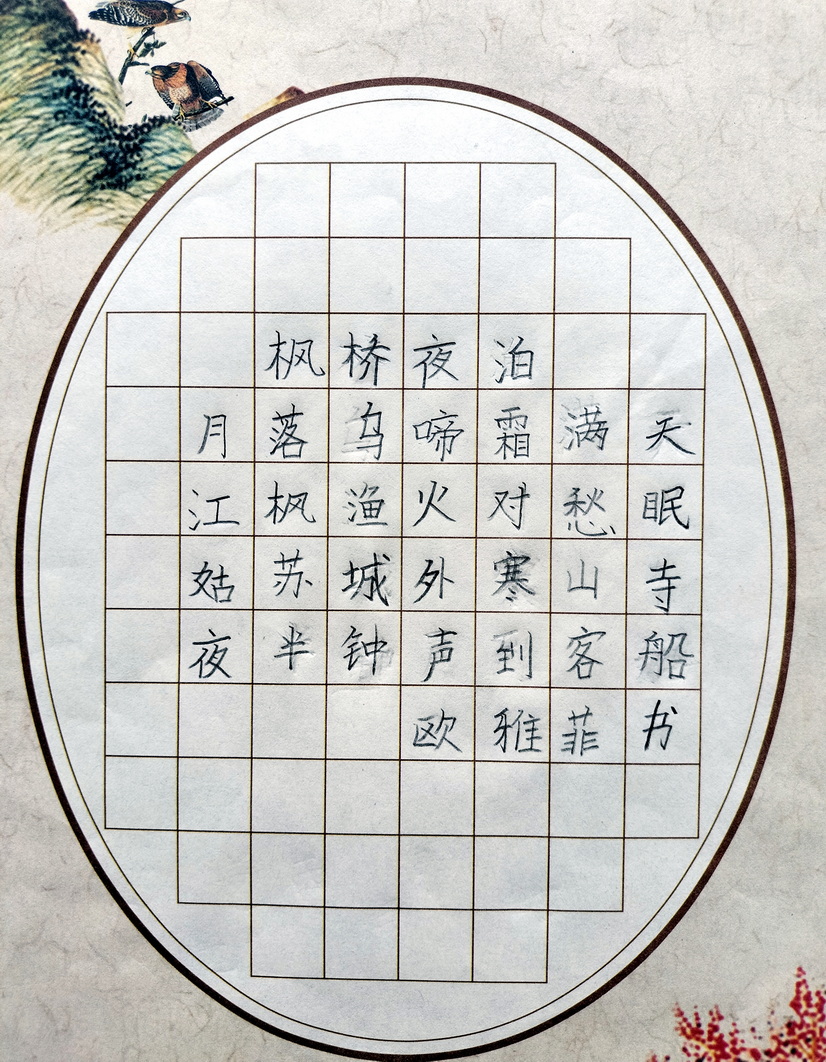 枫桥夜泊
月落乌啼霜满天
江枫渔火对愁眠
姑苏城外寒山寺
夜半钟声到客船
欧雅菲书